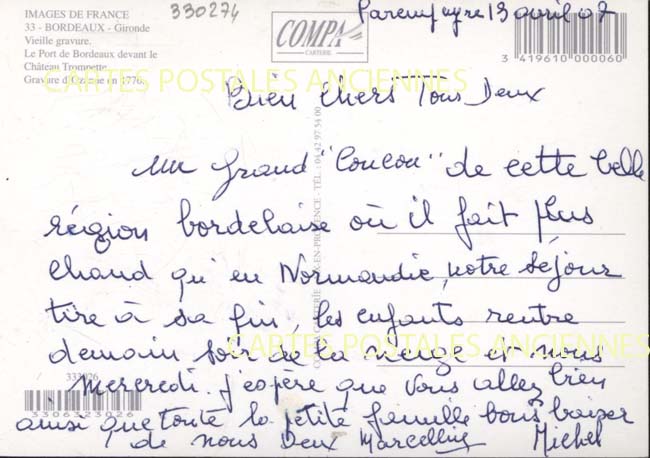 IMAGES DE FRANCE
33 - BORDEAUX - Gironde
Vieille gravure.
Le Port de Bordeaux devant le
Château Trompette
Gravure d'Ozanne en 1776.
330274
COMPA
CARTERIE
Parempuyre 13 avril 07
3 419610 000060
CARTES POSTALES ANCIENNES
Bien Chers Tous Deux
un grand "Coucou" de cette belle
région bordelaise où il fait plus
chaud qu'en Normandie, notre séjour
tire à sa fin, les enfants rentre
demain soir de la neige et nous
Mercredi. J'espère que vous allez bien
ainsi que toute la petite famille bons baiser
de nous Deux Marcelline Michel
CARTES POSTALES ANCIENNES
333026
3306323026
CARTERIE AIX-EN-PROVENCE - TÉL. : 04 42 97 54 00